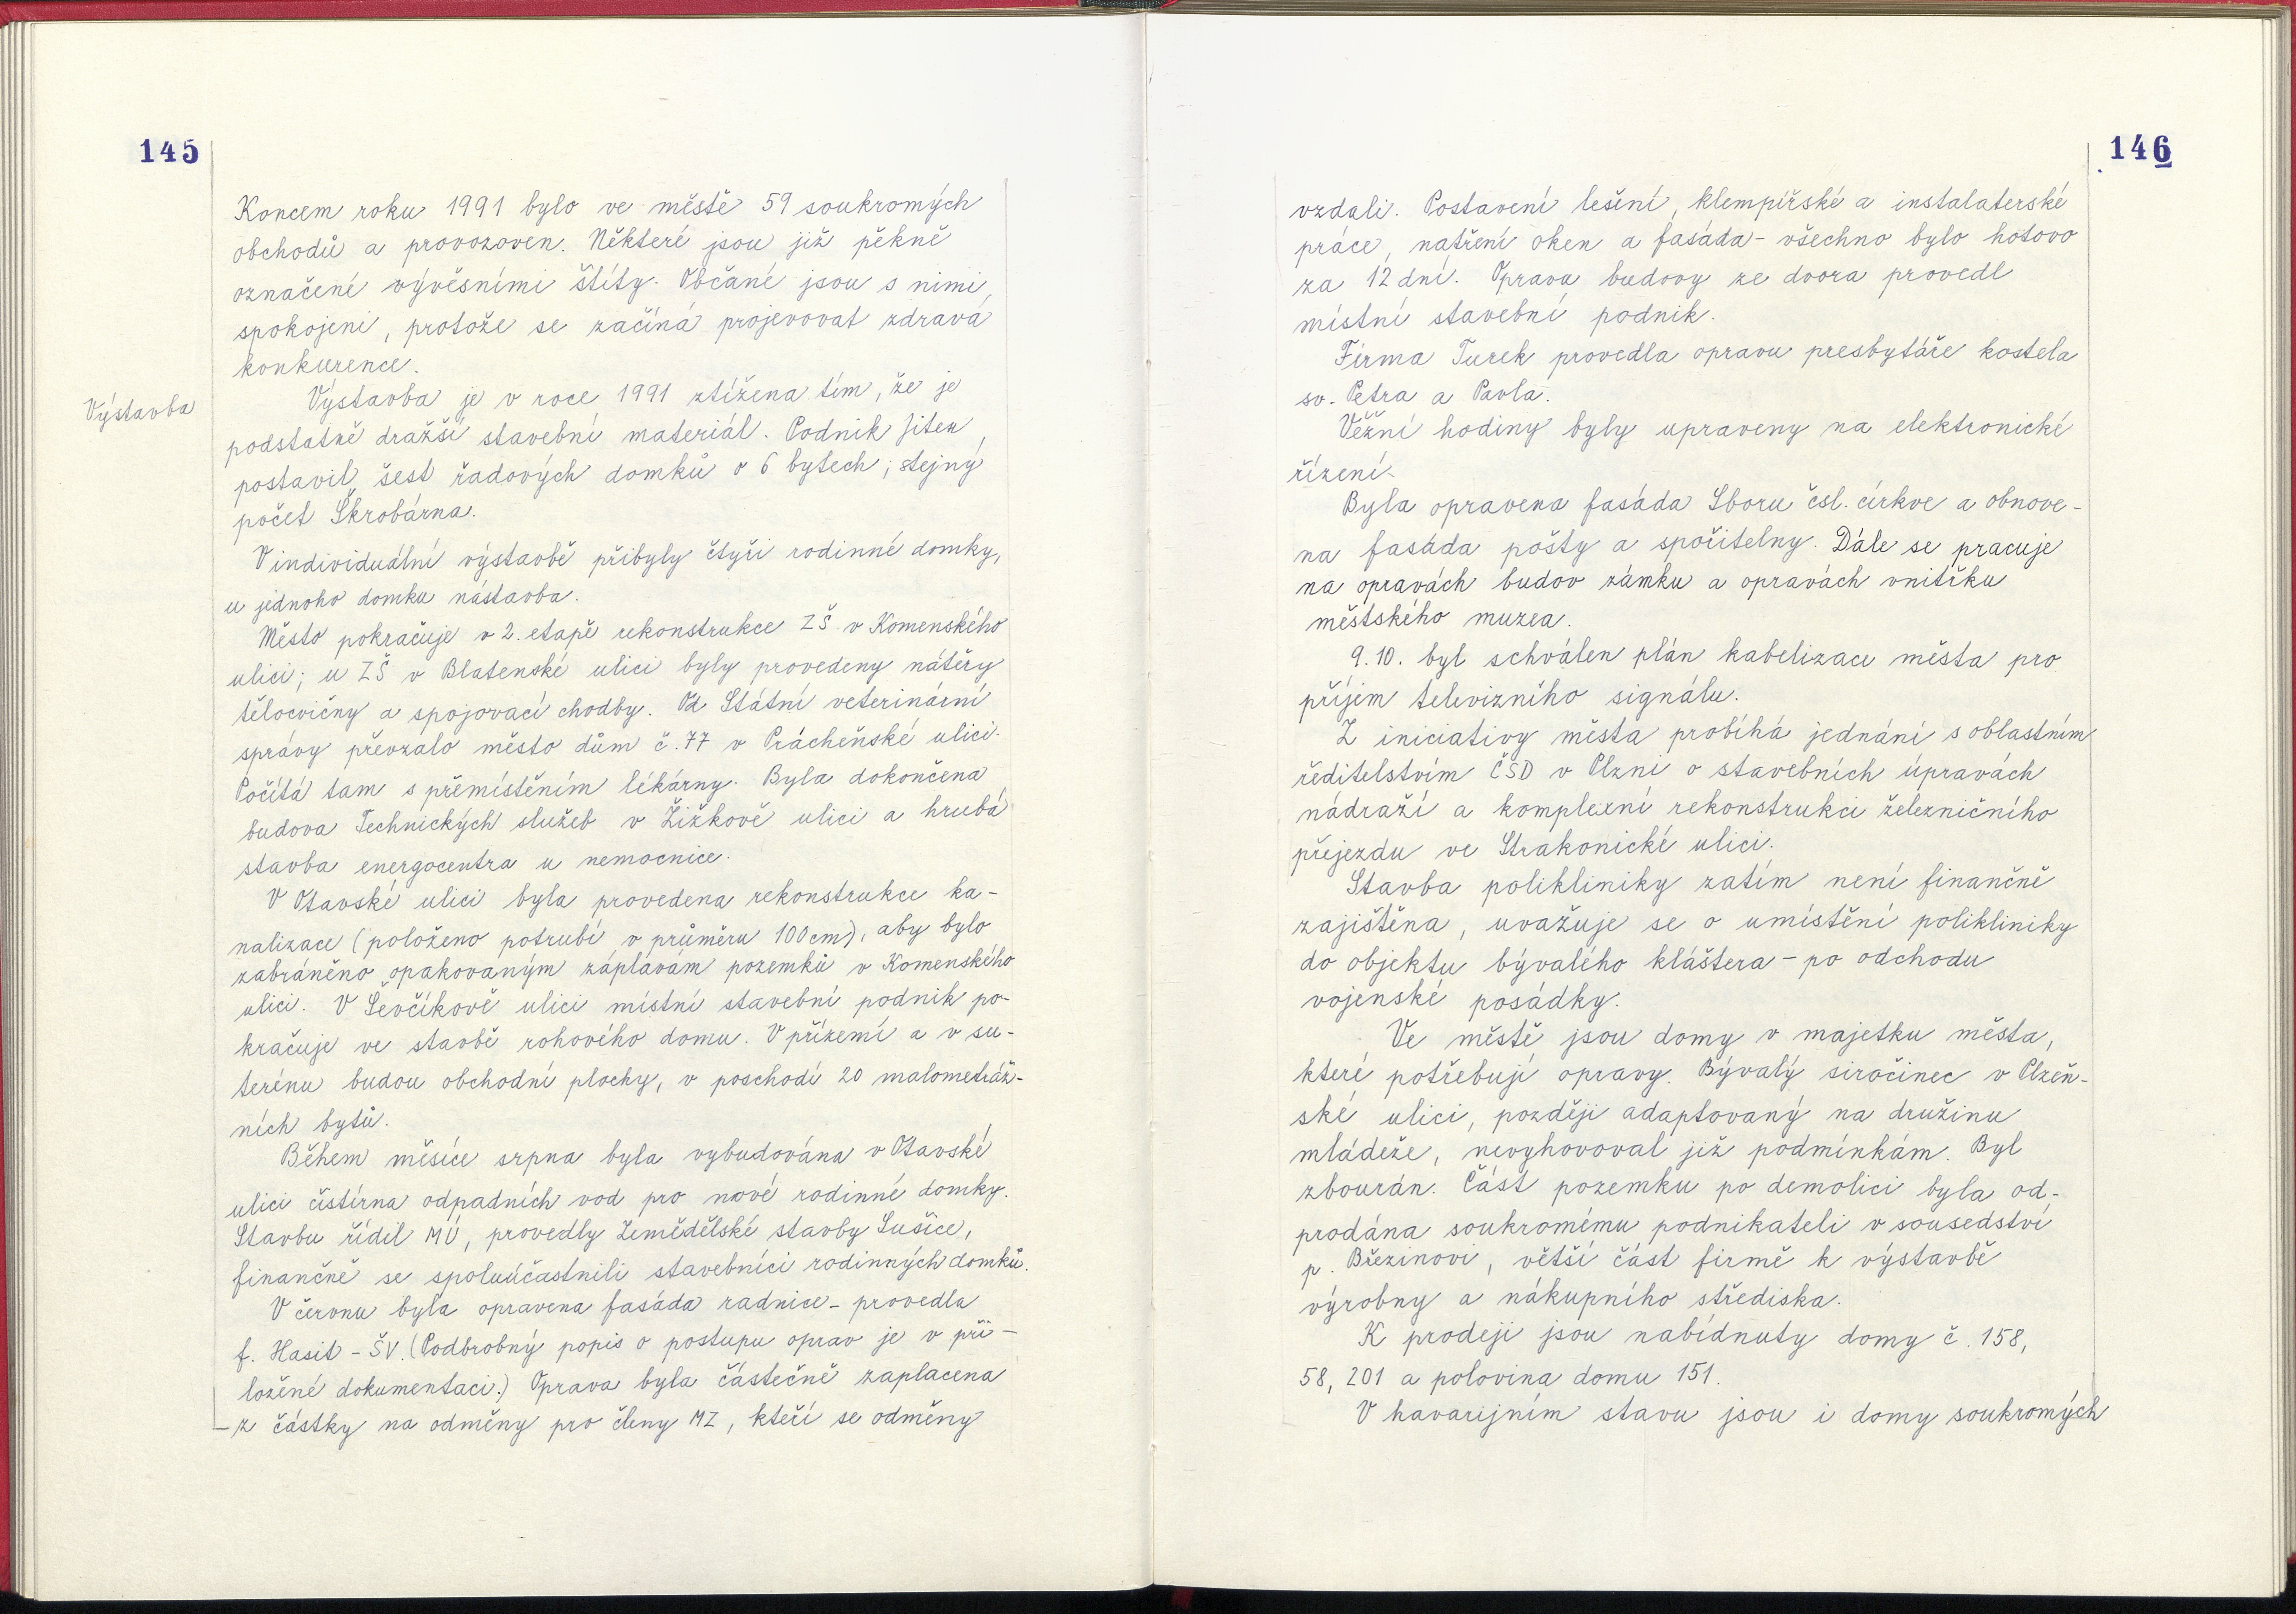 145
Koncem roku 1991 bylo ve městě 59 soukromých
obchodů a provozoven. Některé jsou již pěkně
označené vývěsními štíty. Občané jsou s nimi
spokojeni, protože se začíná projevovat zdravá
konkurence.
Výstavba
Výstavba je v roce 1991 ztížena tím, že je
podstatně dražší stavební materiál. Podnik Jitex
postavil šest řadových domků o 6 bytech; stejný
počet Škrobárna.
V individuální výstavbě přibyly čtyři rodinné domky,
u jednoho domku nástavba.
Město pokračuje v 2. etapě rekonstrukce ZŠ v Komenského
ulici; u ZŠ v Blatenské ulici byly provedeny nátěry
tělocvičny a spojovací chodby. Od Státní veterinární
správy převzalo město dům č. 77 v Prácheňské ulici.
Počítá tam s přemístěním lékárny. Byla dokončena
budova Technických služeb v Žižkově ulici a hrubá
stavba energocentra u nemocnice.
V Otavské ulici byla provedena rekonstrukce ka-
nalizace (položeno potrubí v průměru 100 cm), aby bylo
zabráněno opakovaným záplavám pozemků v Komenského
ulici. V Ševčíkově ulici místní stavební podnik po-
kračuje ve stavbě rohového domu. V přízemí a v su-
terénu budou obchodní plochy, v poschodí 20 malometráž-
ních bytů.
Během měsíce srpna byla vybudována v Otavské
ulici čistírna odpadních vod pro nové rodinné domky.
Stavbu řídil MÚ, provedly Zemědělské stavby Sušice,
finančně se spoluúčastnili stavebníci rodinných domků.
V červnu byla opravena fasáda radnice - provedla
f. Hasit - ŠV. (Podbrobný popis o postupu oprav je v při-
ložené dokumentaci.) Oprava byla částečně zaplacena
- z částky na odměny pro členy MZ, kteří se odměny
146
vzdali. Postavení lešení, klempířské a instalaterské
práce, natření oken a fasáda - všechno bylo hotovo
za 12 dní. Opravu budovy ze dvora provedl
místní stavební podnik.
Firma Turek provedla opravu presbytáře kostela
sv. Petra a Pavla.
Věžní hodiny byly upraveny na elektronické
řízení.
Byla opravena fasáda Sboru čsl. církve a obnove-
na fasáda pošty a spořitelny. Dále se pracuje
na opravách budov zámku a opravách vnitřku
městského muzea.
9. 10. byl schválen plán kabelizace města pro
příjem televizního signálu.
Z iniciativy města probíhá jednání s oblastním
ředitelstvím ČSD v Plzni o stavebních úpravách
nádraží a komplexní rekonstrukci železničního
přejezdu ve Strakonické ulici.
Stavba polikliniky zatím není finančně
zajištěna, uvažuje se o umístění polikliniky
do objektu bývalého kláštera - po odchodu
vojenské posádky.
Ve městě jsou domy v majetku města,
které potřebují opravy. Bývalý siročinec v Plzeň-
ské ulici, později adaptovaný na družinu
mládeže, nevyhovoval již podmínkám. Byl
zbourán. Část pozemku po demolici byla od-
prodána soukromému podnikateli v sousedství
p. Březinovi, větší část firmě k výstavbě
výrobny a nákupního střediska.
K prodeji jsou nabídnuty domy č. 158,
58, 201 a polovina domu 151.
V havarijním stavu jsou i domy soukromých